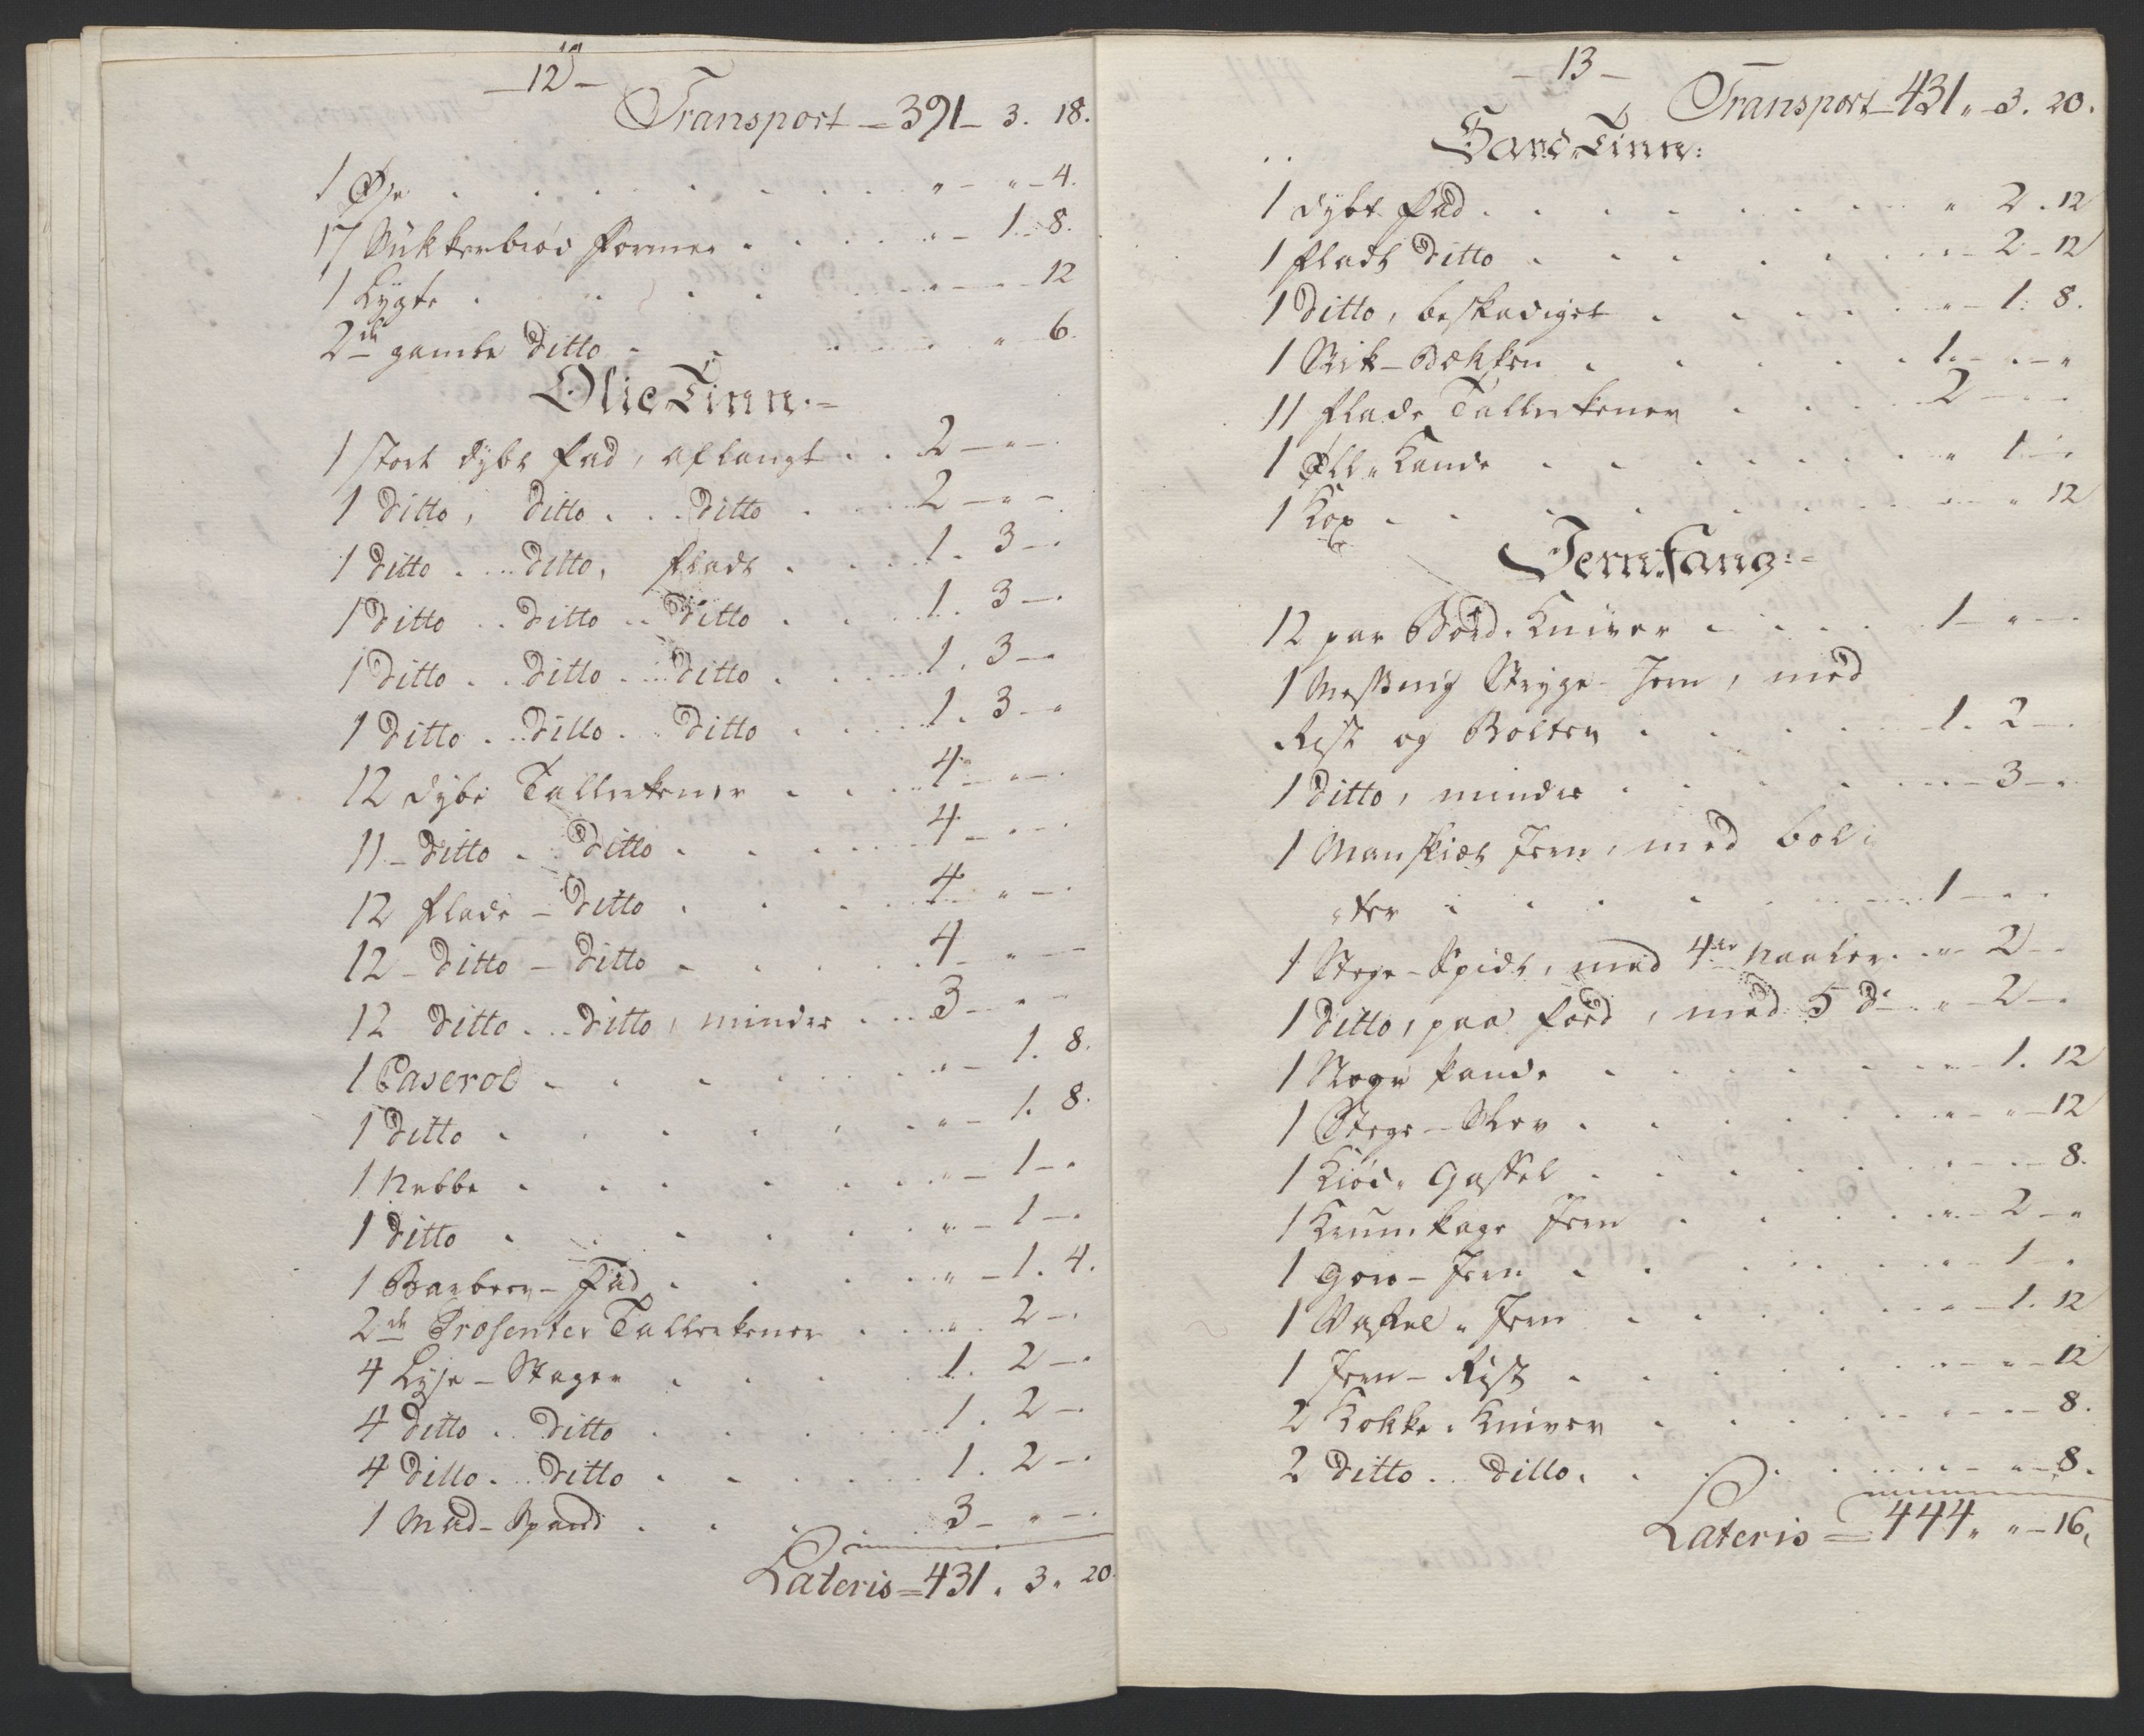 — 12 —
Transport — 391 — 3. 18.
1 Øse . . . . . . . . „ — „ — 4.
17 Sukkerbrød Former . . . . „ — 1. 8.
1 Lygte . . . . . . „ — „ — 12
2de gamle Ditto . . . . „ — 6.
Olie Tinn:=
1 stort dybt Fad, aflangt . . 2 — „ —
1 Ditto, Ditto . . Ditto . . . 2 — „ —
1 Ditto . . Ditto, fladt . . . 1. 3 — .
1 Ditto . . Ditto . . Ditto . . . 1. 3 — .
1 Ditto . . Ditto . . Ditto . . . 1. 3 — „
1 Ditto . . Ditto . . Ditto . . . 1. 3 — „
12 dybe Tallerkener . . . 4 — „ — .
11 — Ditto . . Ditto . . . . 4 — „ — .
12 flade — Ditto . . . . 4 — „ — .
12 — Ditto — Ditto . . . . 4 — „ —
12 Ditto . . Ditto, mindre . . 3 — „ —
1 Caserol . . . . . . „ — 1. 8.
1 Ditto . . . . . . „ — 1. 8.
1 Nebbe . . . . . . „ — 1 — .
1 Ditto . . . . . . „ — 1 — .
1 Barbeer — Fad . . . . „ — 1. 4.
2de Præsenter Tallerkener . . „ . 2 — .
4 Lyse — Stager . . . . 1. 2 — .
4 Ditto . . Ditto . . . . 1. 2 — .
4 Ditto . . Ditto . . . . 1. 2 — .
1 Mad — Spand . . . . 3 — „ — .
Lateris = 431 „ 3 „ 20.
— 13 —
Transport — 431 „ — 3. 20.
Hand „ Tinn:
1 dybt Fad . . . . . . . „ 2. 12
1 fladt Ditto . . . . . . „ — 2 — 12
1 Ditto, beskadiget . . . . . „ — 1. 8.
1 Stik — Bekken . . . . . 1. — „ — „
11 flade Tallerkener . . . . 2 — „ —
1 Øll „ Kande . . . . . . „ 1 — „
1 Kop . . . . . . . „ — „ 12
Jernfang:=
12 par Bord „ Kniver . . . . 1 — „ — .
1 Messing Stryge — Jern, med
Rist og Bolter . . . . . 1. 2 — .
1 Ditto, mindre . . . . . „ — 3 — „
1 Manskiet Jern, med bol„
„ter . . . . . . . 1 — „ .
1 Stege — Spidt, med 4er Naaler . „ — 2 — .
1 Ditto, paa Foed, med 5 Do . „ — 2 — .
1 Stege Pande . . . . . „ — 1. 12
1 Stege — Slev . . . . . „ — „ — 12
1 Kiød „ Gaffel . . . . . „ — „ — 8.
1 Krumkage Jern . . . . „ — 2 — „
1 Goro — Jern . . . . . „ — 1 — .
1 Vaffel „ Jern . . . . . „ — 1. 12
1 Jern — Rist . . . . . „ — „ — 12
2 Kokke „ Kniver . . . . . „ — „ — 8.
2 Ditto . . Ditto . . . . . „ — „ — 8.
Lateris = 444 „ „ — 16.